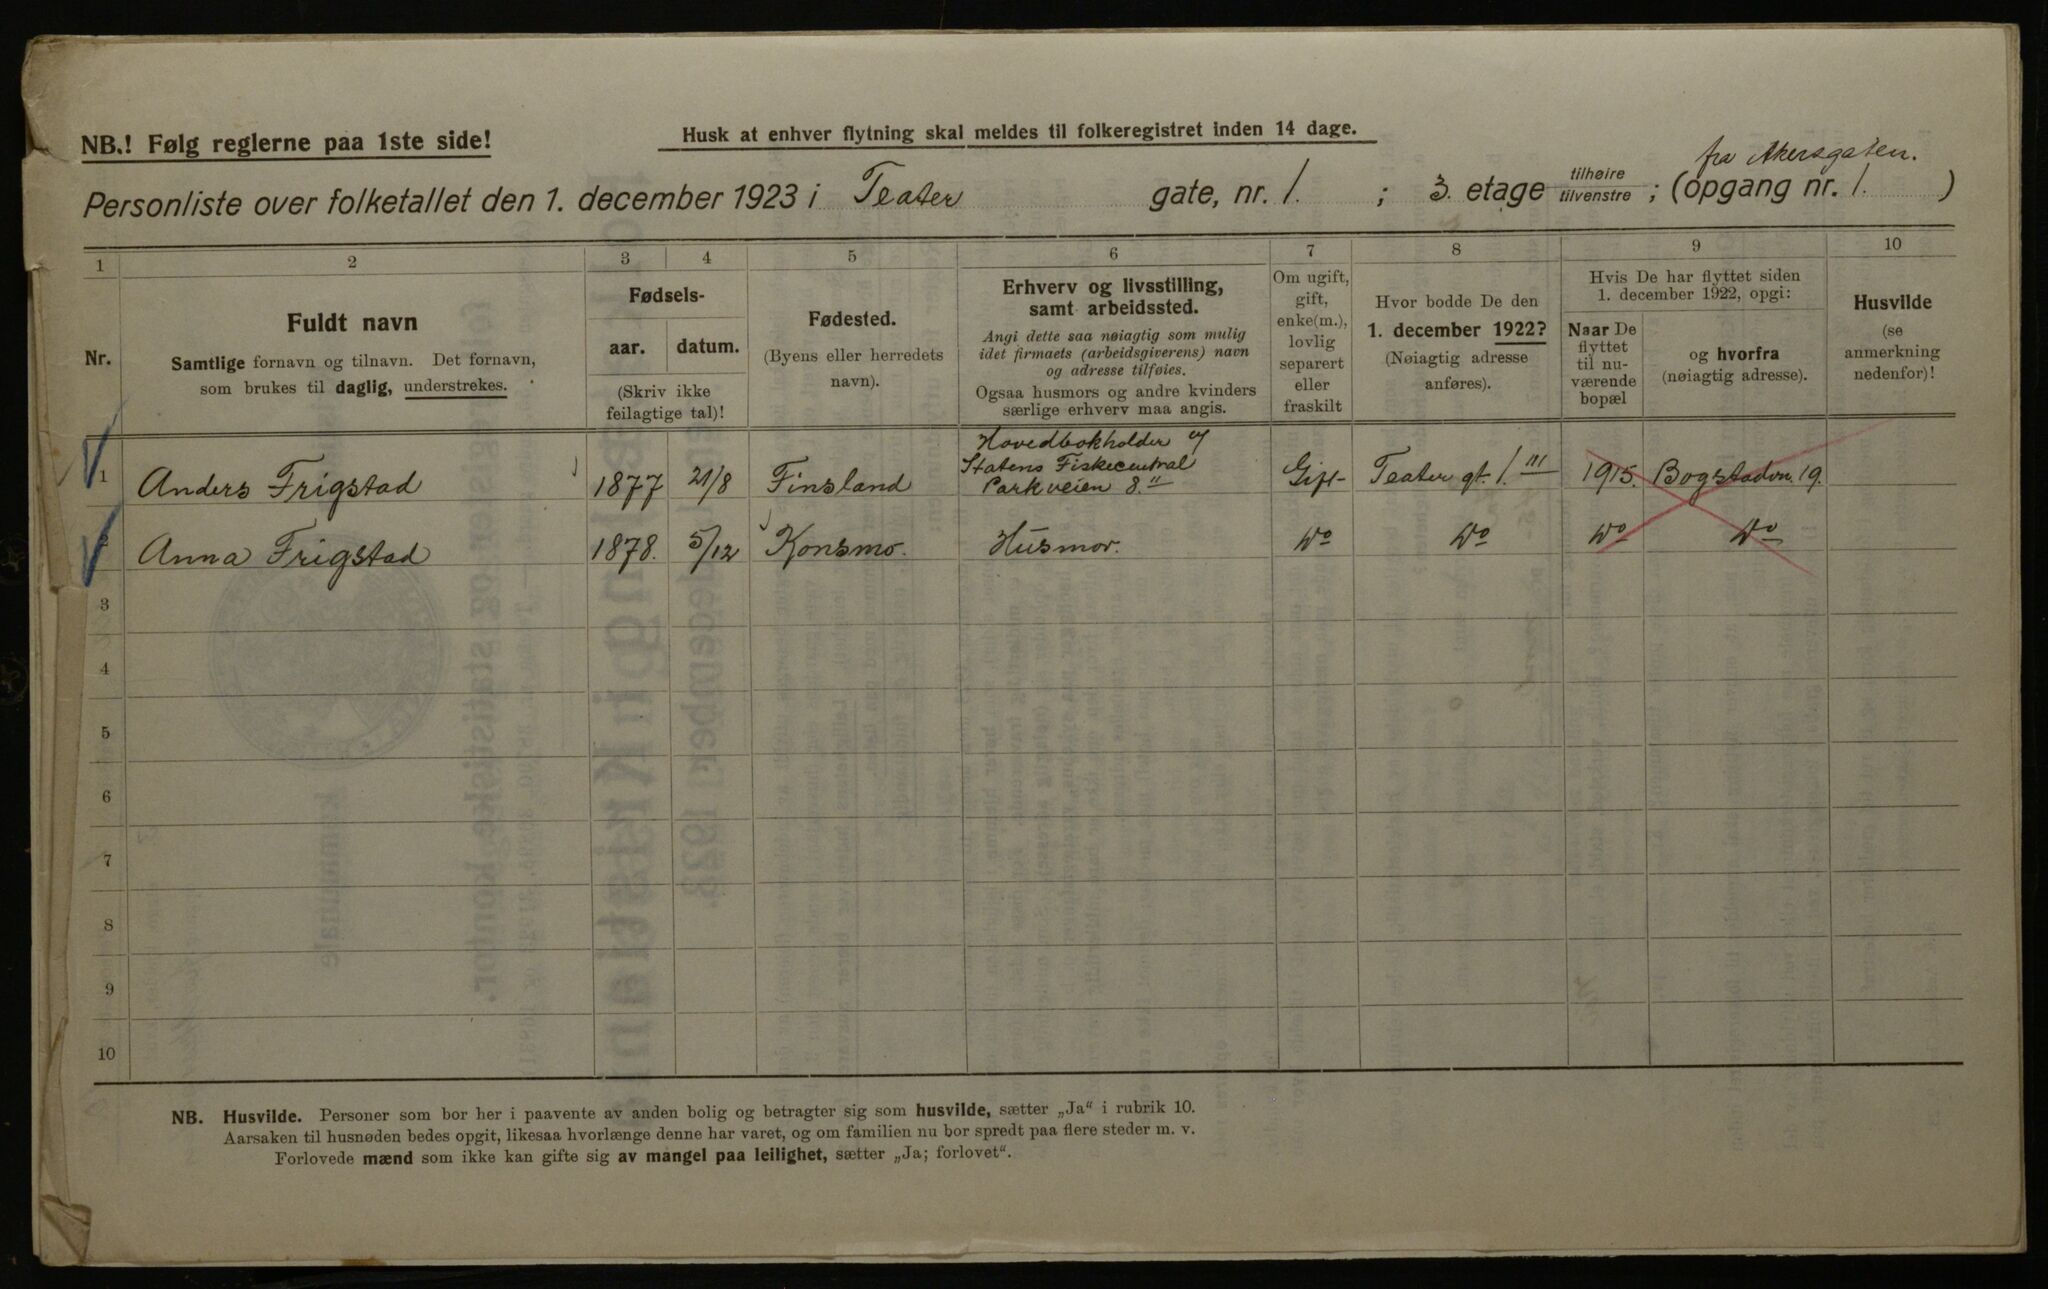 NB.! Følg reglerne paa 1ste side!
Husk at enhver flytning skal meldes til folkeregistret inden 14 dage.
fra Akersgaten.
Personliste over folketallet den 1. december 1923 i Teater gate, nr. 1. ; 3. etage tilhøire tilvenstre ; (opgang nr. 1. )
1 2 3 4 5 6 7 8 9 10
Nr.
Fuldt navn
Samtlige fornavn og tilnavn. Det fornavn,
som brukes til daglig, understrekes.
Fødsels-
aar. datum.
(Skriv ikke
feilagtige tal)!
Fødested.
(Byens eller herredets
navn).
Erhverv og livsstilling,
samt arbeidssted.
Angi dette saa nøiagtig som mulig
idet firmaets (arbeidsgiverens) navn
og adresse tilføies.
Ogsaa husmors og andre kvinders
særlige erhverv maa angis.
Om ugift,
gift,
enke(m.),
lovlig
separert
eller
fraskilt
Hvor bodde De den
1. december 1922?
(Nøiagtig adresse
anføres).
Hvis De har flyttet siden
1. december 1922, opgi:
Naar De
flyttet
til nu-
værende
bopæl
og hvorfra
(nøiagtig adresse).
Husvilde
(se
anmerkning
nedenfor)!
Hovedbokholder
Statens Fiskecentral
Parkveien 8.II
1 Anders Frigstad 1877 21/8 Finsland Gift Teater gt. 1.III 1915. Bogstadvn. 19.
2 Anna Frigstad 1878. 5/12 Konsmo. Husmor. Do Do Do Do
3
4
5
6
7
8
9
10
NB. Husvilde. Personer som bor her i paavente av anden bolig og betragter sig som husvilde, sætter „Ja“ i rubrik 10.
Aarsaken til husnøden bedes opgit, likesaa hvorlænge denne har varet, og om familien nu bor spredt paa flere steder m. v.
Forlovede mænd som ikke kan gifte sig av mangel paa leilighet, sætter „Ja; forlovet“.